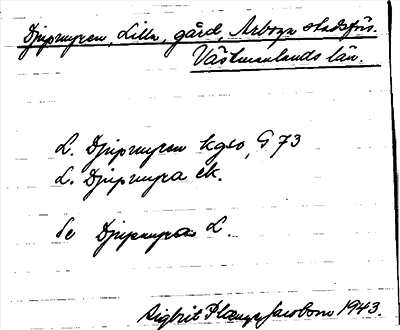 Djipmyren, Lilla, gård, Arboga stadsförs.
Västmanlands län.
L. Djipmyren kgso, G 73
L. Djipmyra ek.
Se Djipmyra L.
Sigbrit Plænge Jacobson 1943.